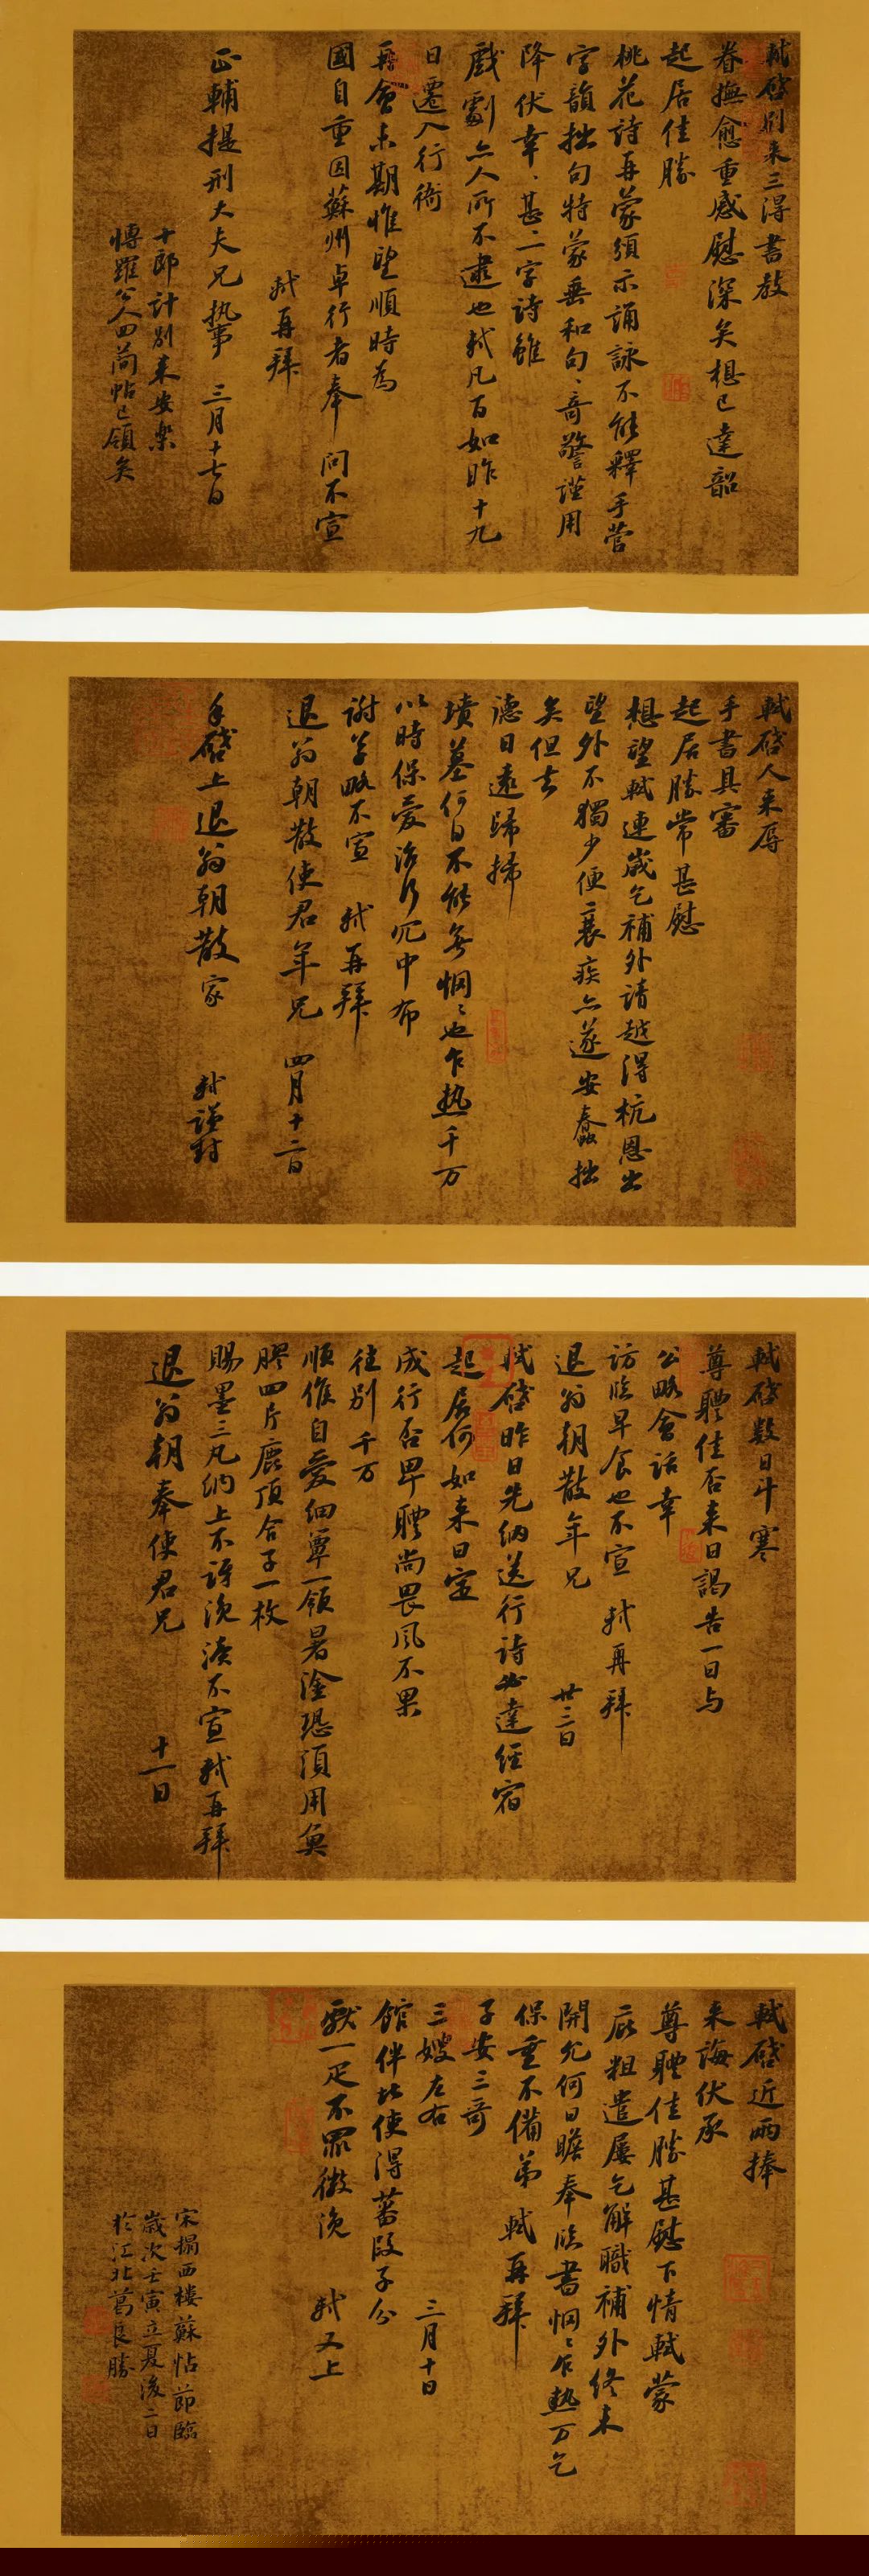 軾啓別来三得書教
眷撫愈重感慰深矣想已達韶
起居佳勝
桃花詩再蒙須示誦詠不能釋手菅
字韻拙句特蒙垂和句〻奇警謹用
降伏幸〻甚二字詩雖
戲劇亦人所不逮也軾凡百如昨十九
日遷入行衙
再會未期惟望順時為
國自重因蘇州卓行者奉問不宣
軾再拜
正輔提刑大夫兄執事 三月十七日
十郎計別来安樂
慱羅公人回簡帖已領矣
軾啓人来辱
手書具審
起居勝常甚慰
想望軾連歲乞補外請越得杭恩出
望外不獨少便衰疾亦遂安蠢拙
矣但去
德日遠歸掃
墳墓何日不能無惘〻也乍熱千万
以時保愛治行冗中布
謝草略不宣 軾再拜
退翁朝散使君年兄 四月十二日
手啓上退翁朝散家 軾謹封
軾啓數日斗寒
尊體佳否来日謁告一日与
公略會話幸
訪臨早食也不宣 軾再拜
退翁朝散年兄 廿三日
軾啓昨日先納送行詩必達經宿
起居何如来日定
成行否卑體尚畏風不果
往別千万
順候自愛細簟一領暑塗恐須用奐
膠四片鹿頂合子一枚
賜墨三丸納上不訝浼瀆不宣軾再拜
退翁朝奉使君兄 十一日
軾啓近兩捧
来誨伏承
尊體佳勝甚慰下情軾蒙
庇粗遣屢乞解職補外終未
開允何日瞻奉臨書惘〻乍熱万乞
保重不備弟 軾再拜
子安三哥
三嫂左右 三月十日
館伴北使得蕃段子分
獻一疋不罪微浼 軾又上
宋搨西樓蘇帖節臨
歲次壬寅立夏後二日
於江北葛良勝